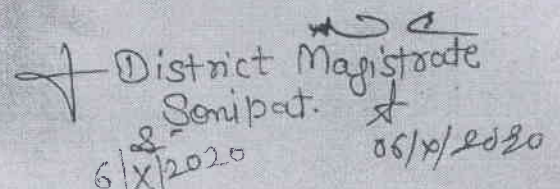 District Magistrate
Sonipat.
6/X/2020
06/X/2020